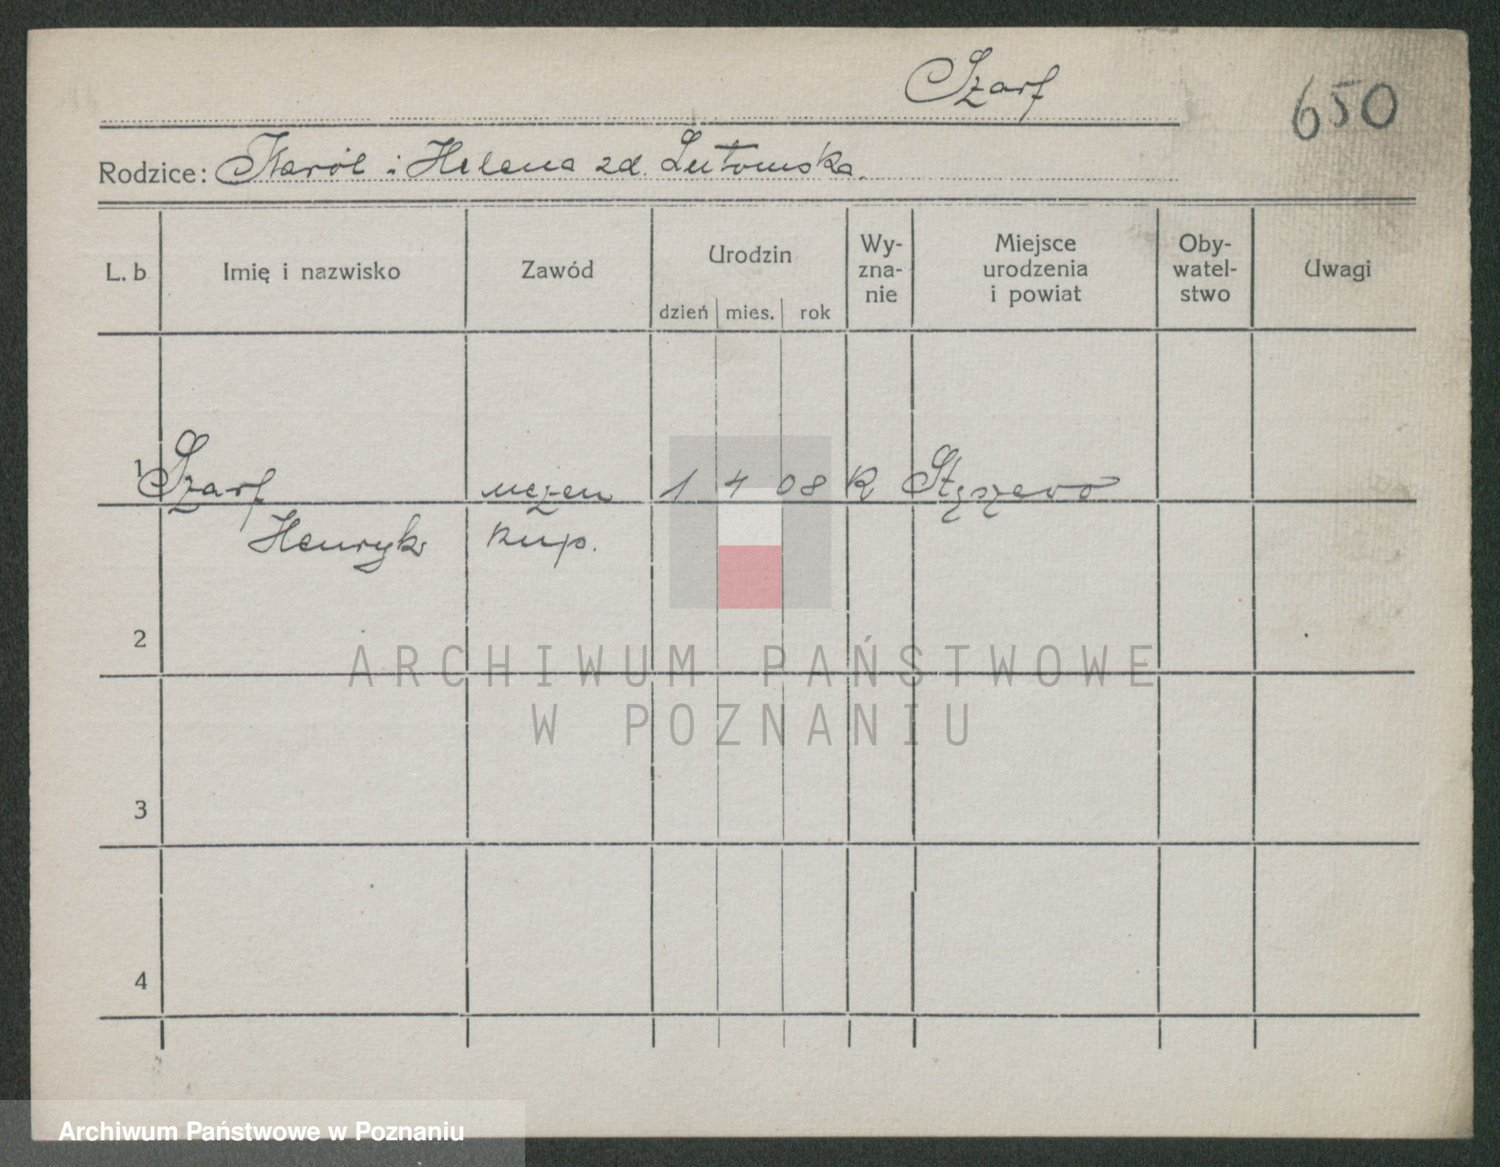 Szarf
650
Rodzice: Karól i Helena zd. Lutomska.
L. b. Imię i nazwisko Zawód Urodzin dzień mies. rok Wy-zna-nie Miejsce urodzenia i powiat Oby-watel-stwo Uwagi
1 Szarf uczeń 1 4 08 K
Henryk kup.
2
ARCHIWUM PAŃSTWOWE
W POZNANIU
3
4
Archiwum Państwowe w Poznaniu